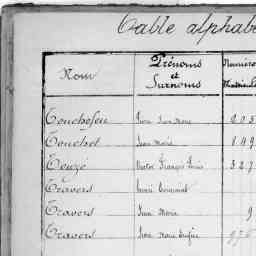 Table alphabe
Nom Prénoms et Surnoms Numéro Matricule
Touchefeu Jean Marie 203
Touchet Jean Marie 849
Touzé Victor François Louis 327
Travers
Travers Jean Marie 9
Travers Jean Marie 976